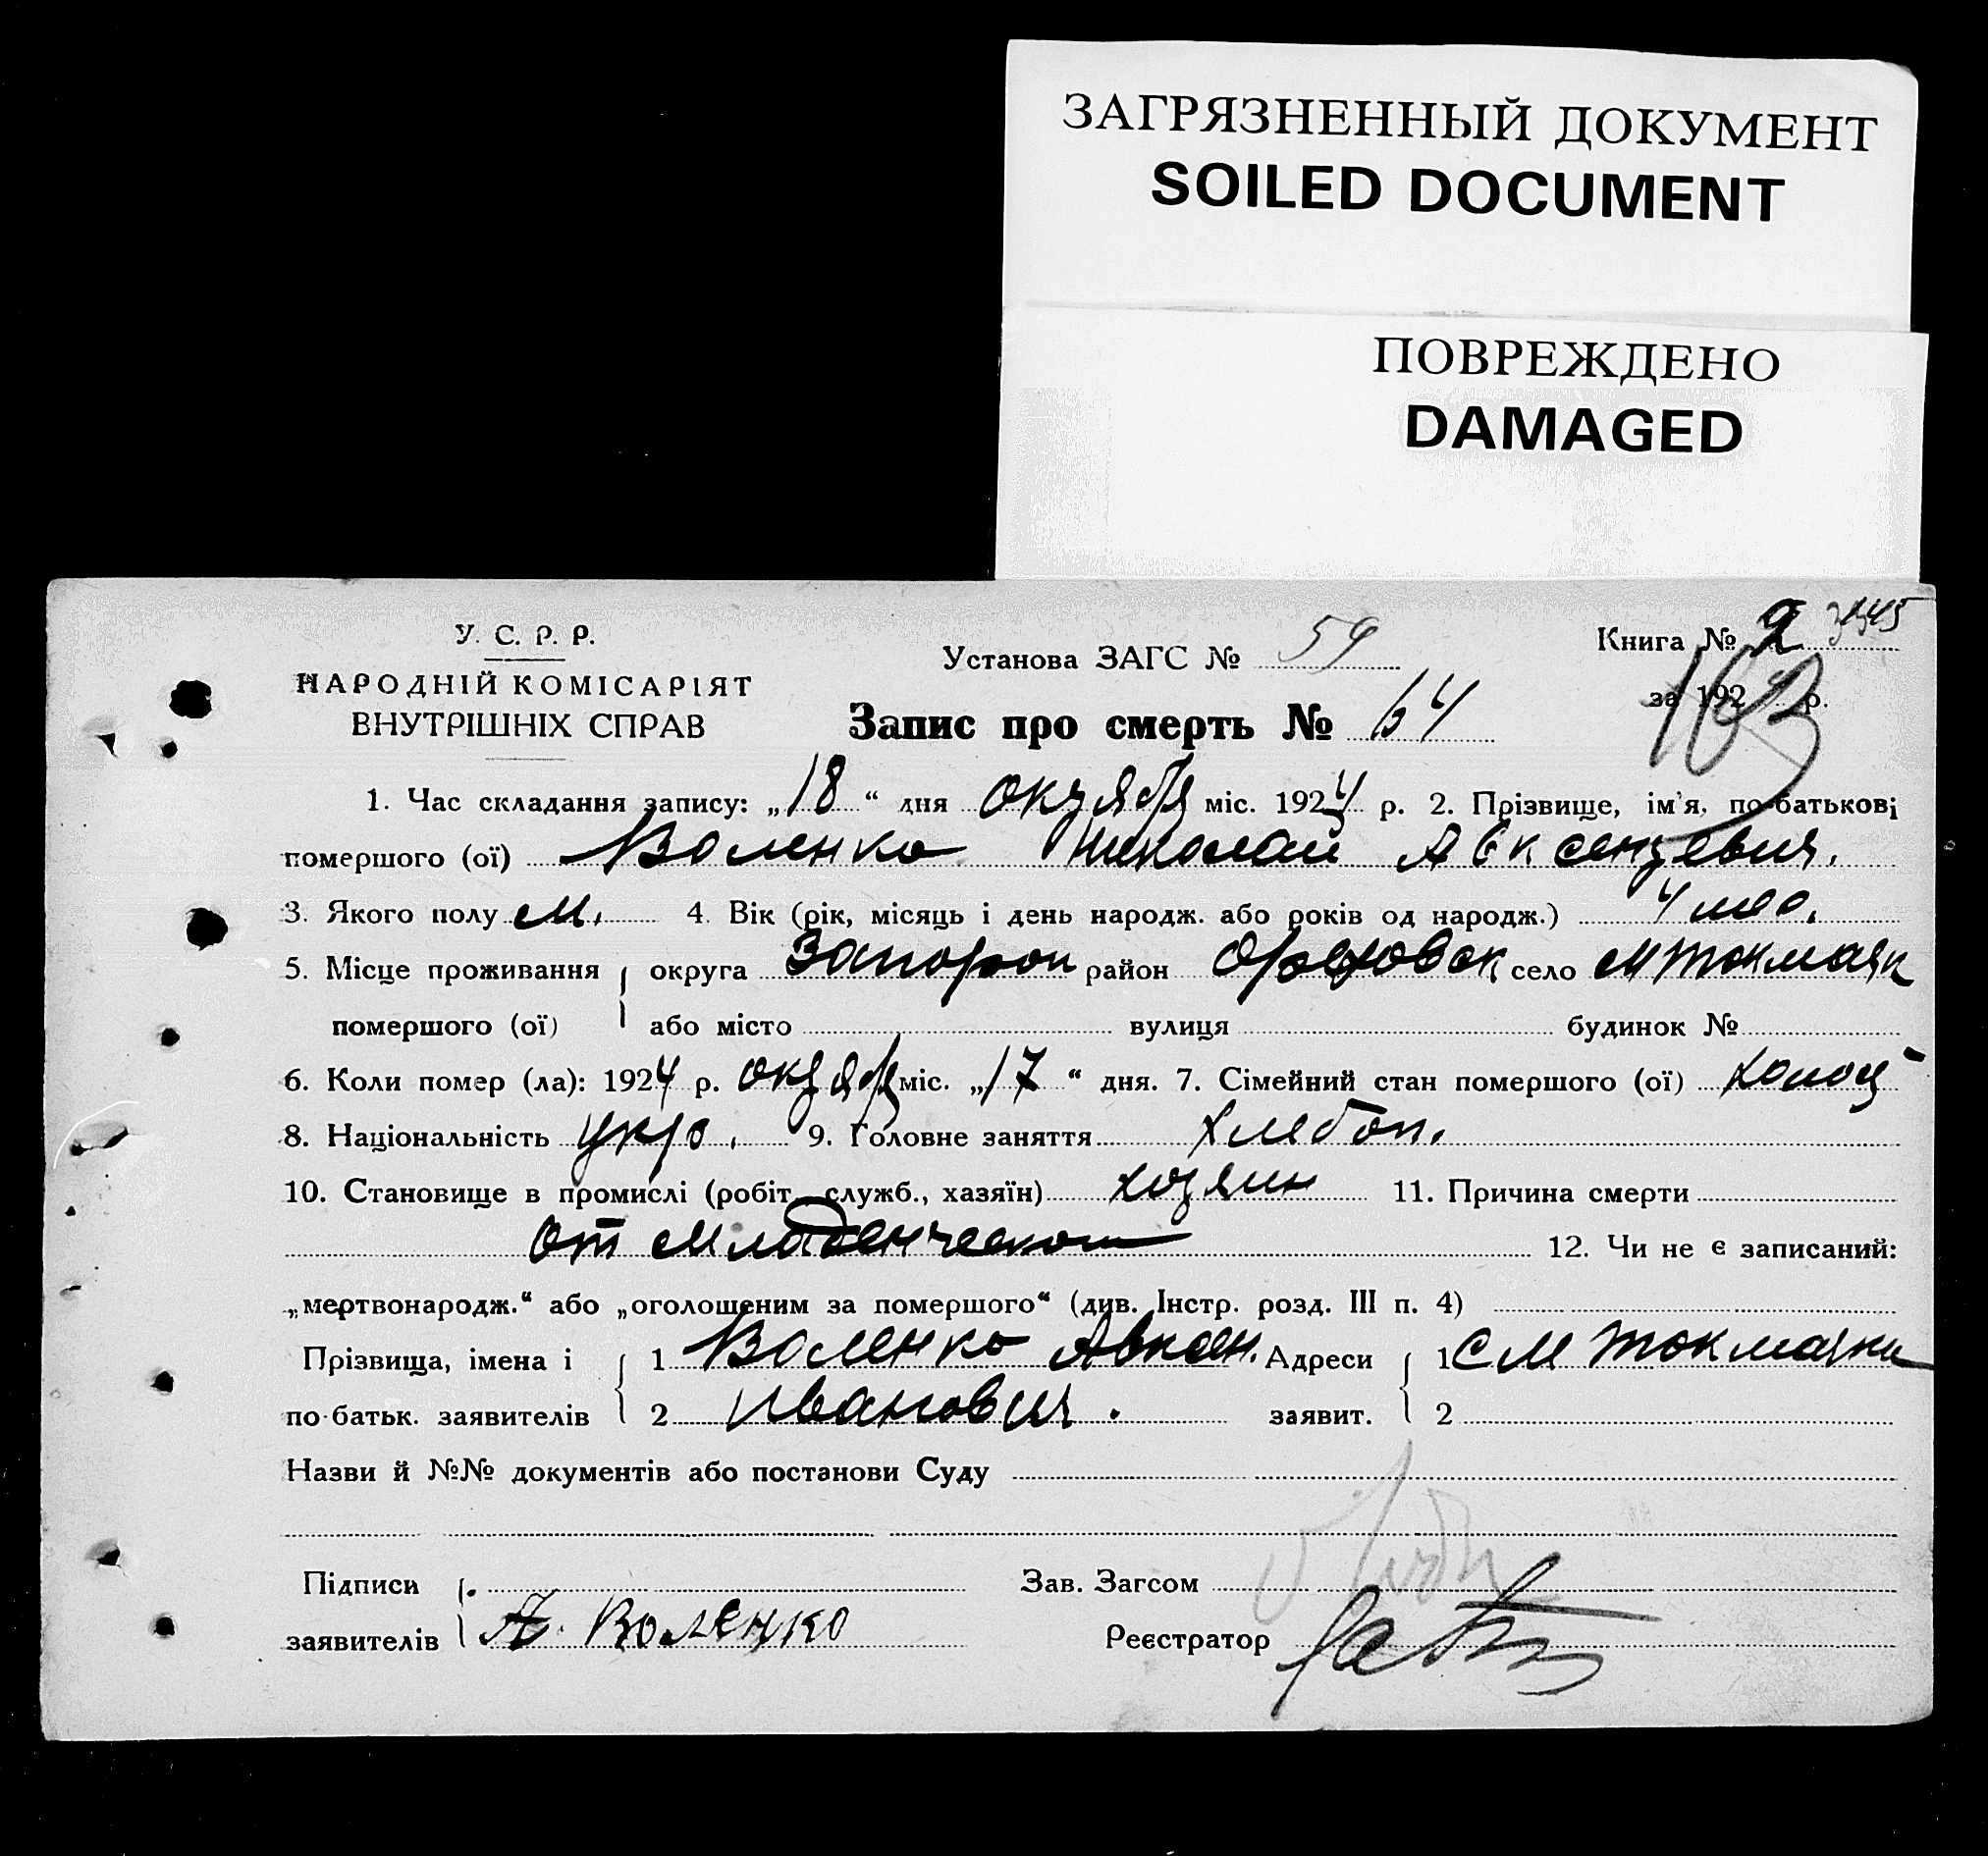 ЗАГРЯЗНЕННЫЙ ДОКУМЕНТ
SOILED DOCUMENT
ПОВРЕЖДЕНО
DAMAGED
У. С. Р. Р.
НАРОДНІЙ КОМІСАРІЯТ
ВНУТРІШНІХ СПРАВ
Установа ЗАГС № 59
Книга № 2
за 1924 р.
163
Запис про смерть № 64
1. Час складання запису: „18“ дня октября міс. 1924 р. 2. Прізвище, ім'я, по-батькові
помершого (ої) Воленко Николай Авксентевич.
3. Якого полу м. 4. Вік (рік, місяць і день народж. або років од народж.) 4 мес.
5. Місце проживання округа Запорож район Ореховск село М Токмачк
помершого (ої) або місто вулиця будинок №
6. Коли помер (ла): 1924 р. октября міс. „17“ дня. 7. Сімейний стан помершого (ої) холост
8. Національність укр. 9. Головне заняття хлебоп.
10. Становище в промислі (робіт., служб., хазяїн) хозяин 11. Причина смерти
от младенческой 12. Чи не є записаний:
„мертвонародж.“ або „оголошеним за помершого“ (див. Інстр. розд. III п. 4)
Прізвища, імена і 1 Воленко Авксен. Адреси 1 С М Токмачка
по-батьк. заявителів 2 Иванович. заявит. 2
Назви й №№ документів або постанови Суду
Підписи Зав. Загсом
заявителів А. Воленко Реєстратор